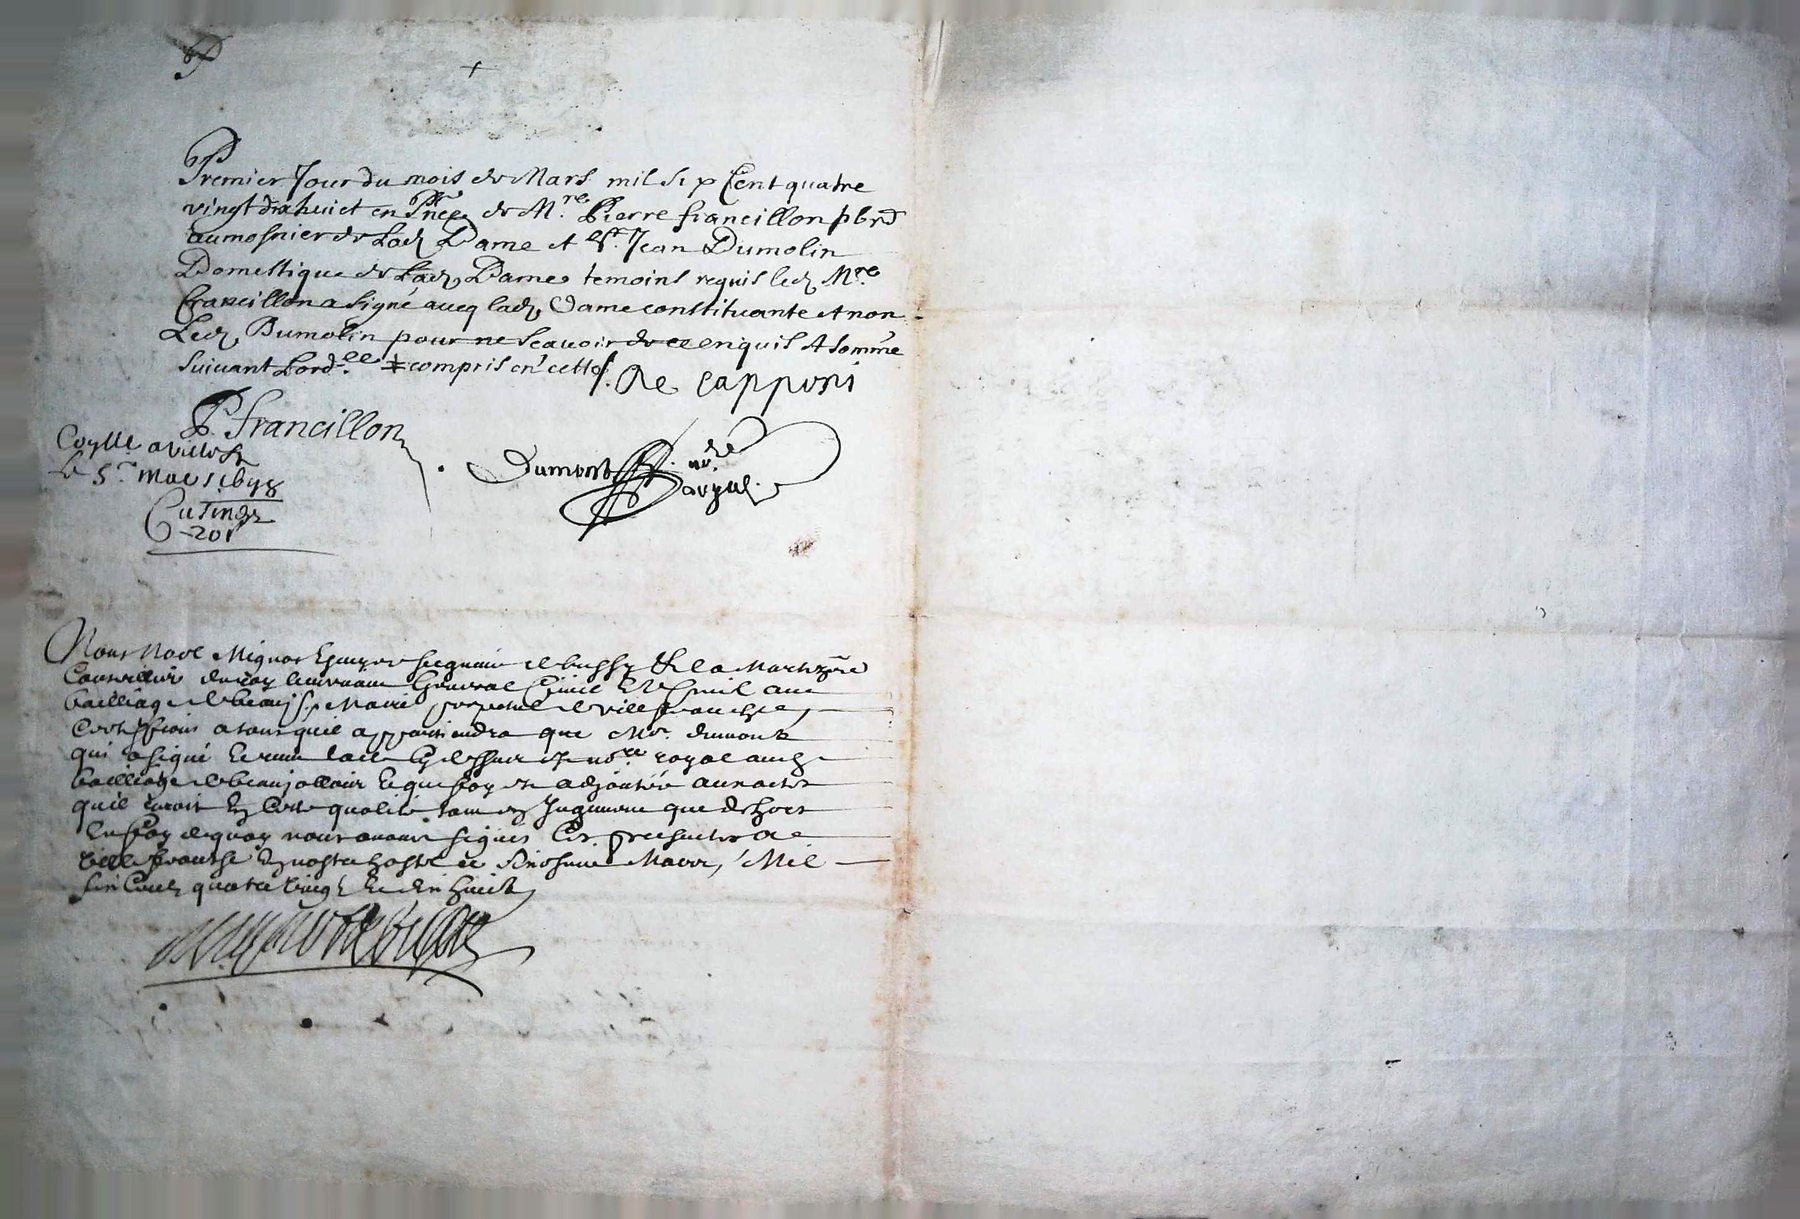 Premier Jour du mois de Mars mil six Cent quatre
vingt dixhuict en Pñce de M.re Pierre francillon pbrē
aumosnier de Lad. Dame et Sr. Jean Dumolin
Domestique de Lad. Dame temoins requis led. M.re
francillon a signé aueq lad. Dame constituante et non
Led. Dumolin pour ne scauoir de ce enquis et sommé
suiuant Lord.ce compris en cette
De Capponi
P. francillon
Dumont
le 5.e mars 1698
Nous Noel Mignot Escuyer seigneur de bussy & de la Martizr̃e
Conseiller du roy lieutenant General Ciuil et Criminel au
bailliage de beaujollois Maire perpetuel de villefranche,
Certiffions a tous quil appartiendra que Me. dumont
qui a signé et receu lacte Cy dessus est no.re royal aud.
bailliage de beaujollois et que foy est adjoutée aux actes
quil recoit En Cette qualité tant en Jugement que dehors
En foy de quoy nous auons signé Ces presentes a
villefranche En nostre hostel ce Mars, Mil
six Cent quatre vingt et dix huict